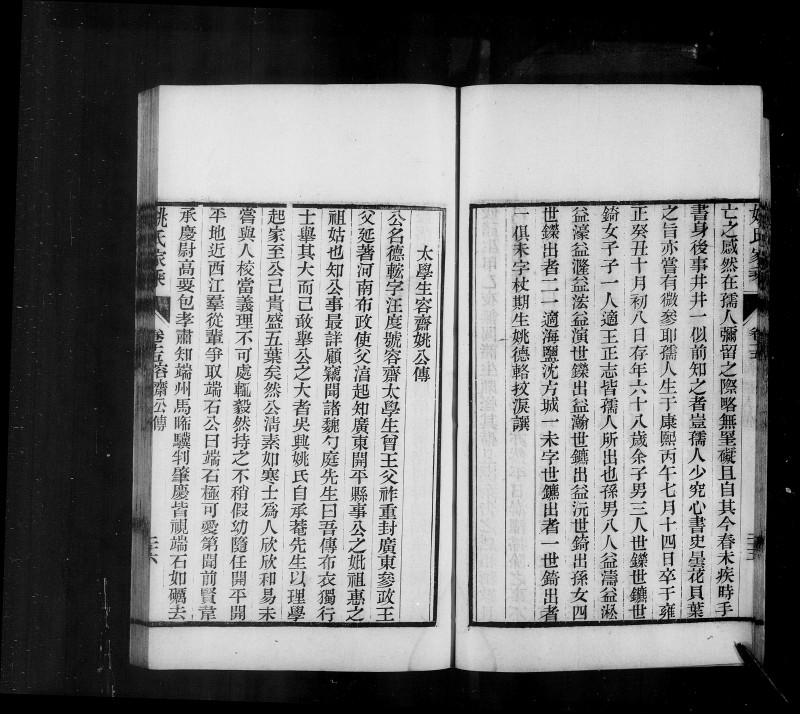 姚氏家乘 卷十五
亡之感然在孺人彌留之際略無罣礙且自其今春未疾時手
書身後事井井一似前知之者豈孺人少究心書史曇花貝葉
之旨亦嘗有微參耶孺人生于康熙丙午七月十四日卒于雍
正癸丑十月初八日存年六十八歲余子男三人世鑠世鑣世
錡女子子一人適王正志皆孺人所出也孫男八人益濤益淞
益濠益漋益浤益演世鑠出益瀚世鑣出益沅世錡出孫女四
世鑠出者二一適海鹽沈方城一未字世鑣出者一世錡出者
一俱未字杖期生姚德輅抆淚譔
太學生容齋姚公傳
公名德輇字注度號容齋太學生曾王父祚重封廣東參政王
父延著河南布政使父淯起知廣東開平縣事公之妣祖惠之
祖姑也知公事最詳顧竊聞諸魏勺庭先生曰吾傳布衣獨行
士舉其大而己敢舉公之大者吳興姚氏自承菴先生以理學
起家至公已貴盛五葉矣然公清素如寒士為人欣欣和易未
嘗與人校當義理不可處輒毅然持之不稍假幼隨任開平開
平地近西江羣從輩爭取端石公曰端石極可愛第聞前賢韋
承慶尉高要包孝肅知端州馬臨驥判肇慶皆視端石如礪去
姚氏家乘 卷十五容齋公傳 三六